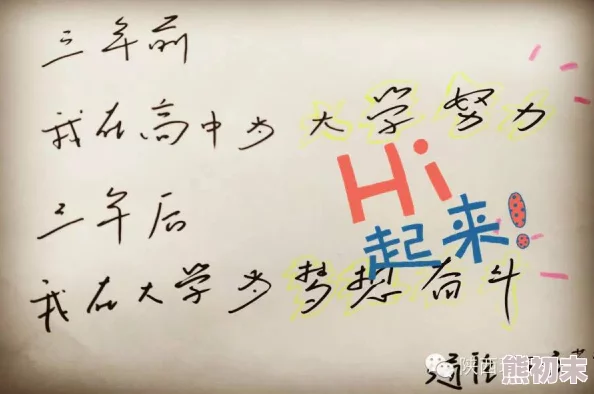 三年前
我在高中为大学努力
Hi
三年后
起来!
我在大学为梦想奋斗
陕西
熊初末